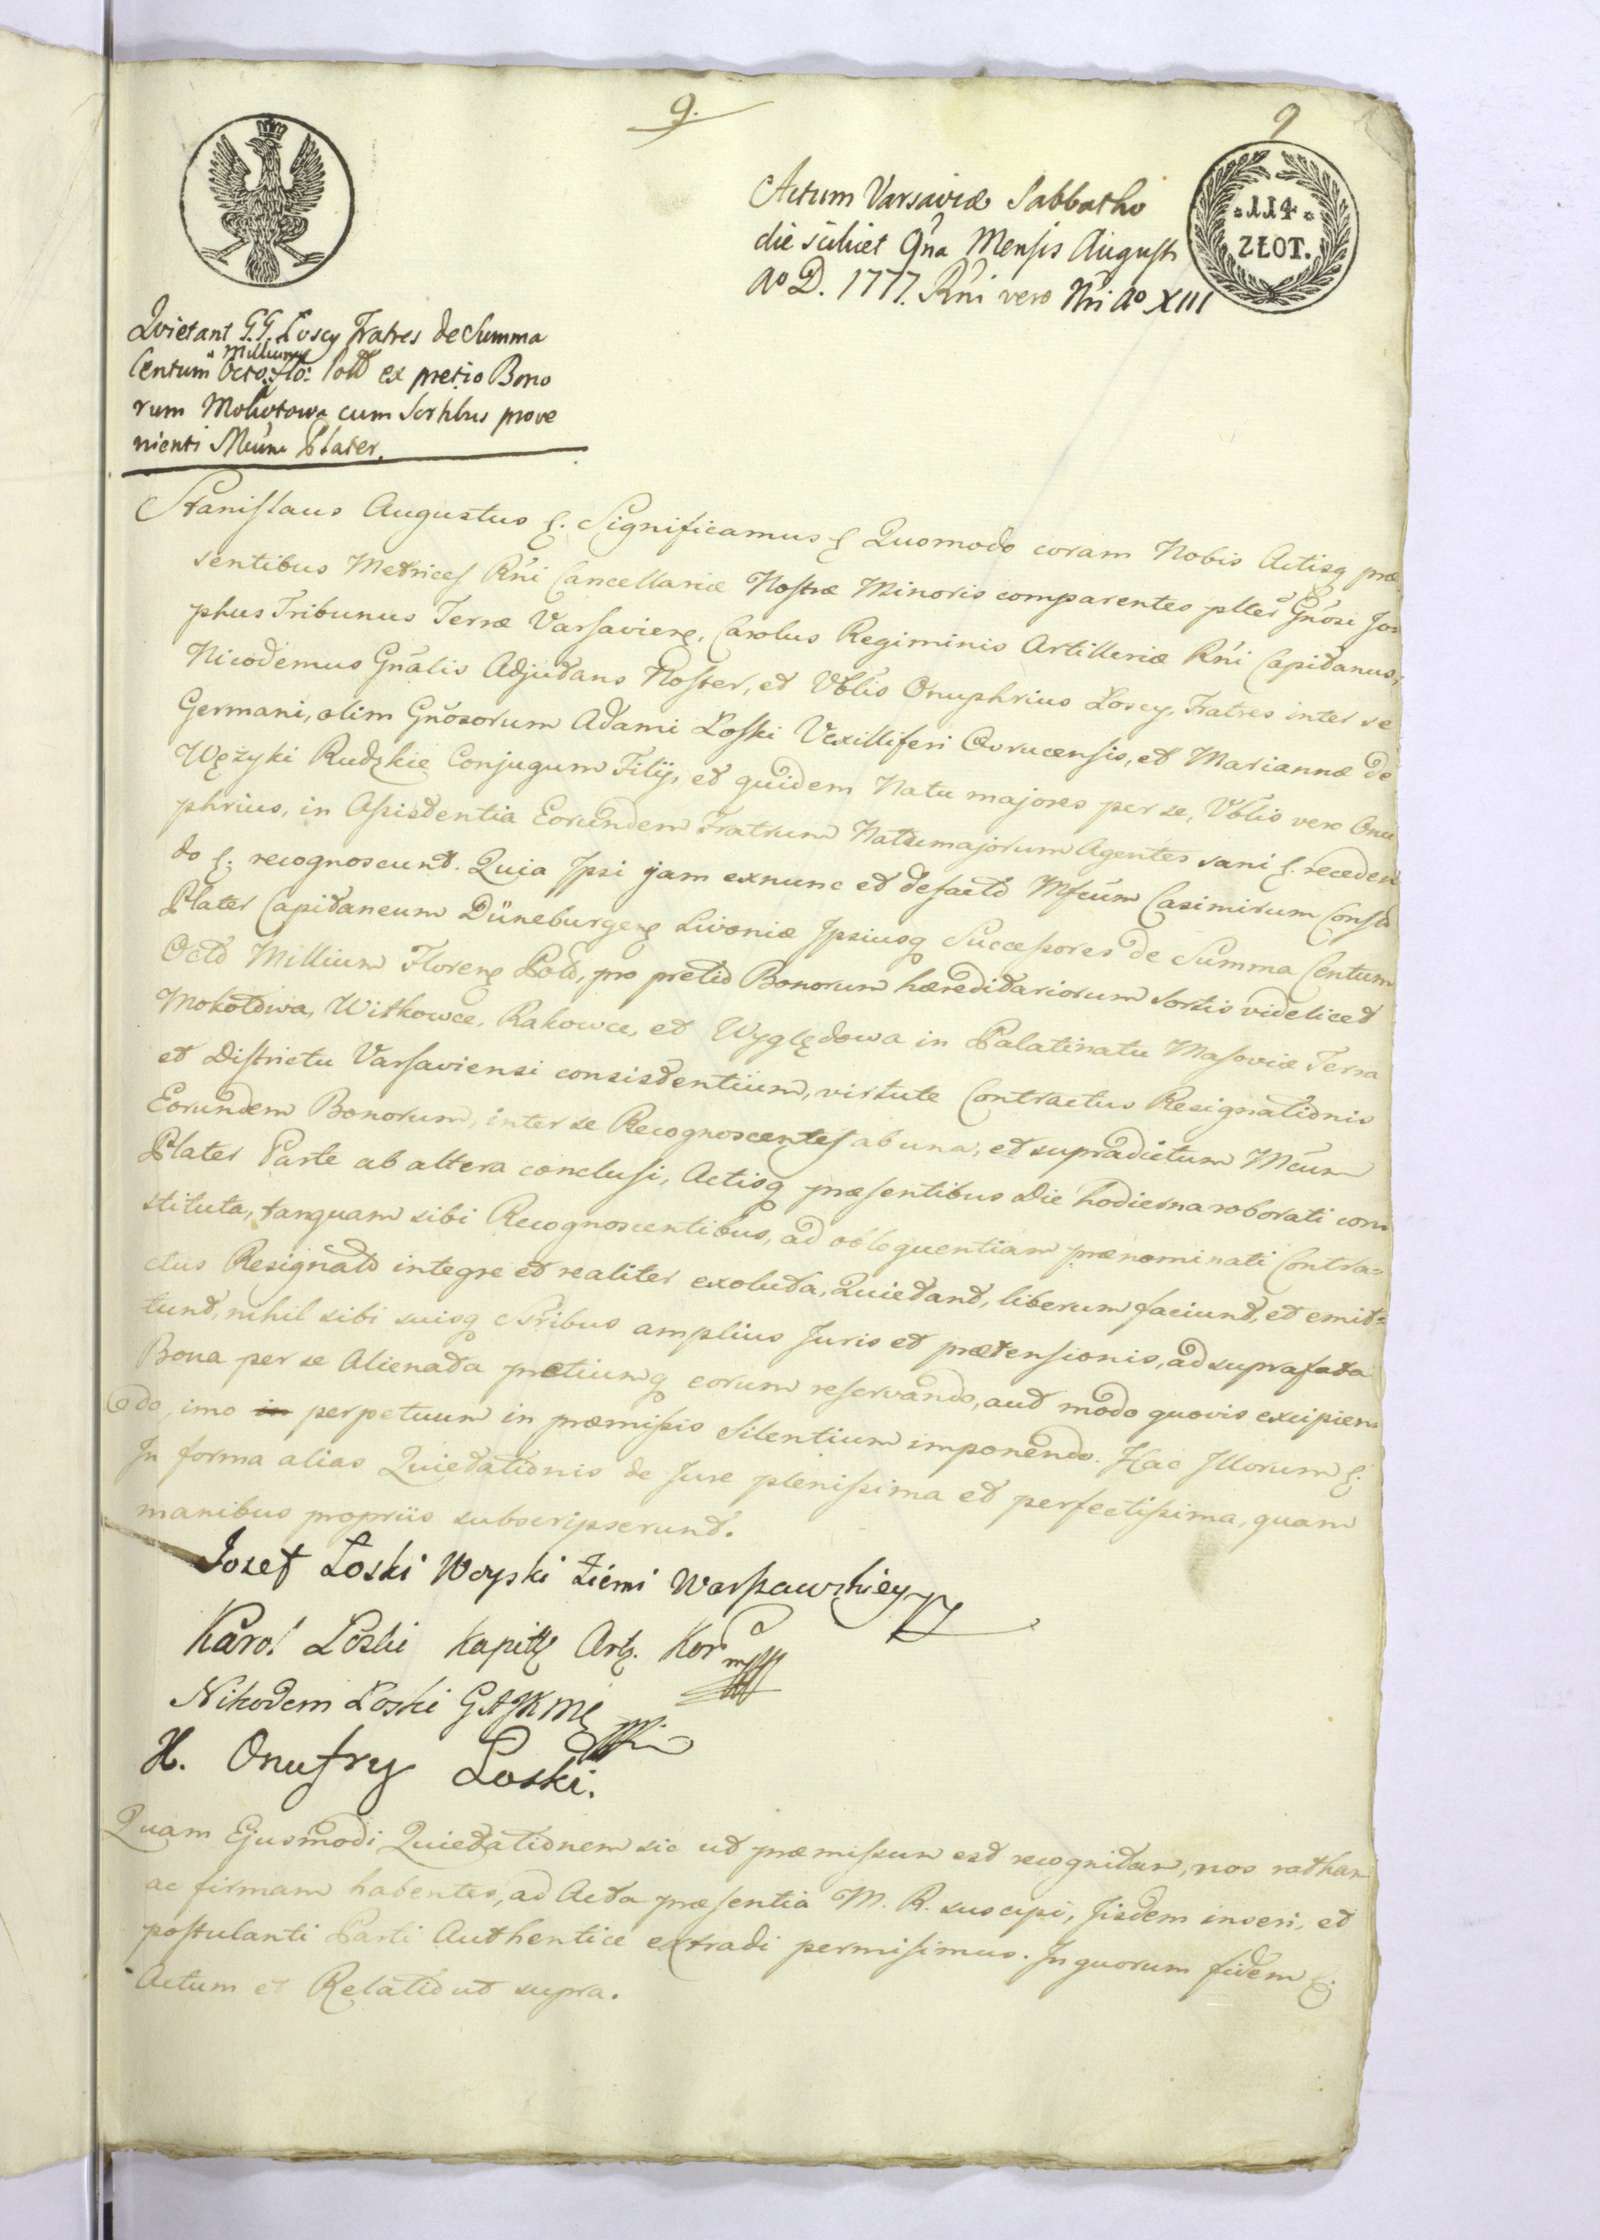 9.
9
114
ZŁOT.
Actum Varsaviæ Sabbatho
die scilicet 9na Mensis Augusti
Ao D. 1777. Rñi vero Nri Ao XIII
Quietant G.G. Łoscy Fratres de Summa
Centum Octo Millium flo: Pold ex pretio Bono
rum Mokotowa cum Sortibus prove
nienti Mcum Plater.
Stanislaus Augustus &. Significamus & Quomodo coram Nobis Actisq præ
sentibus Metrices Rñi Cancellariæ Nostræ Minoris comparentes plter Gñosi Jos
phus Tribunus Terræ Varsavien, Carolus Regiminis Artilleriæ Rñi Capitanus,
Nicodemus Gñalis Adjutans Noster, et Vblis Onuphrius Łoscy, Fratres inter se
Germani, olim Gñosorum Adami Łoski Vexilliferi Ovrucensis, et Mariannæ de
Wężyki Rudzkie Conjugum Filij, et quidem Natu majores per se, Vblis vero Onu
phrius, in Assistentia Eorundem Fratrum Natu majorum Agentes sani &. receden
do &. recognoscunt. Quia Ipsi jam exnunc et defacto Mfcum Casimirum Const
Plater Capitaneum Düneburgen Livoniæ Ipsiusq Successores de Summa Centum
Octo Millium Floren Pold, pro pretio Bonorum hæreditariorum Sortis videlicet
Mokotowa, Witkowce, Rakowce, et Wyględowa in Palatinatu Masoviæ Terra
et Districtu Varsaviensi consistentium, virtute Contractus Resignationis
Eorundem Bonorum, inter se Recognoscentes ab una, et supradictum Mcum
Plater Parte ab altera conclusi, Actisq præsentibus Die hodierna roborati con
stituta, tanquam sibi Recognoscentibus, ad obloquentiam prænominati Contra=
ctus Resignato integre et realiter exoluta, Quietant, liberum faciunt, et emit=
tunt, nihil sibi suisq Sribus amplius Juris et prætensionis, ad suprafata
Bona per se Alienata pretiumq eorum reservando, aut modo quovis excipien
do, imo in perpetuum in præmissis Silentium imponendo. Hac Illorum &.
In forma alias Quietationis de Jure plenissima et perfectissima, quam
manibus propriis subscripserunt.
Jozef Łoski Woyski Ziemi Warszawskiey
Karol Łoski Kapitt Art. Kor
Nikodem Łoski GAJKMć
H. Onufry Łoski.
Quam Ejusmodi Quietationem sic ut præmissum est recognitam, nos ratham
ac firmam habentes, ad Acta præsentia M. R. suscipi, Iisdem inseri, et
postulanti Parti Authentice extradi permisimus. In quorum fidem &.
Actum et Relatio ut supra.